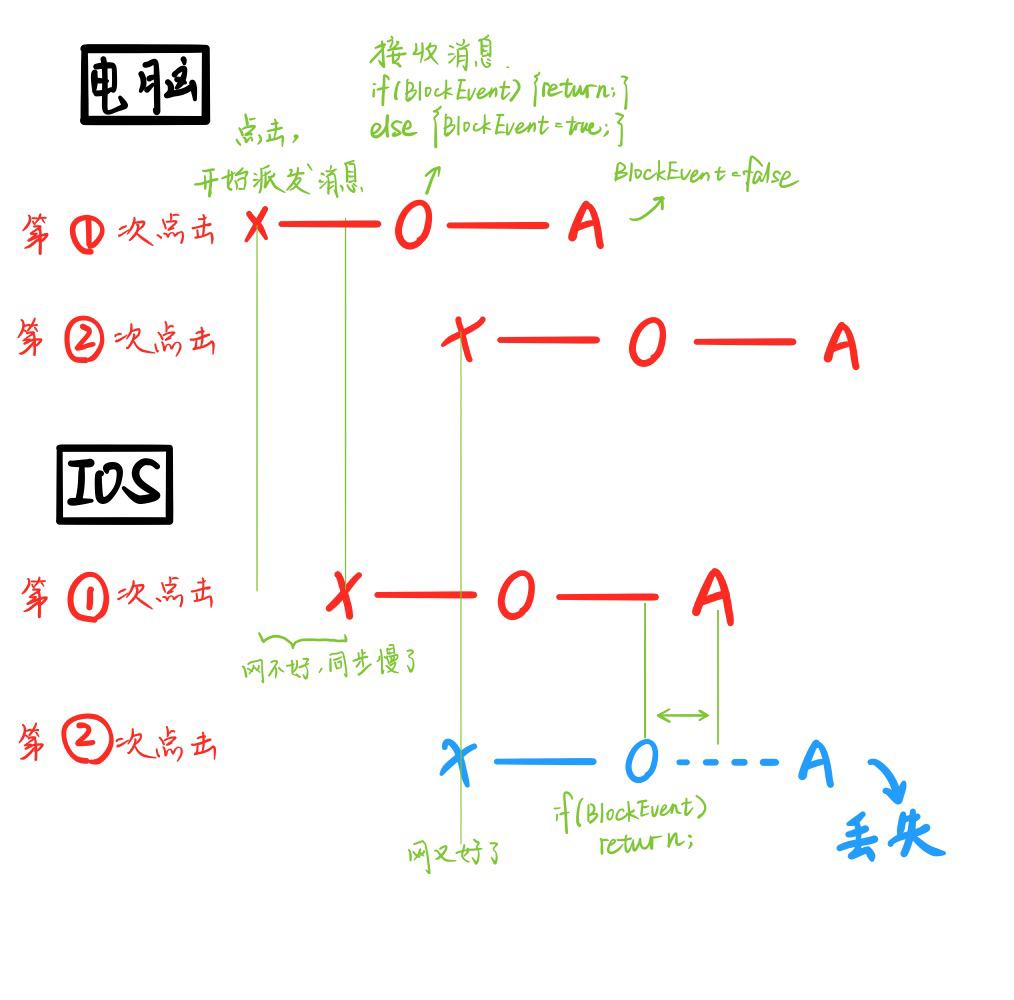 电脑
接收消息.
if(BlockEvent) {return;}
else {BlockEvent=true;}
点击，
开始派发消息
BlockEvent=false
第①次点击 X — O — A
第②次点击 X — O — A
IOS
第①次点击 X — O — A
网不好,同步慢了
第②次点击 X — O --- A
if(BlockEvent)
return;
丢失
网又好了